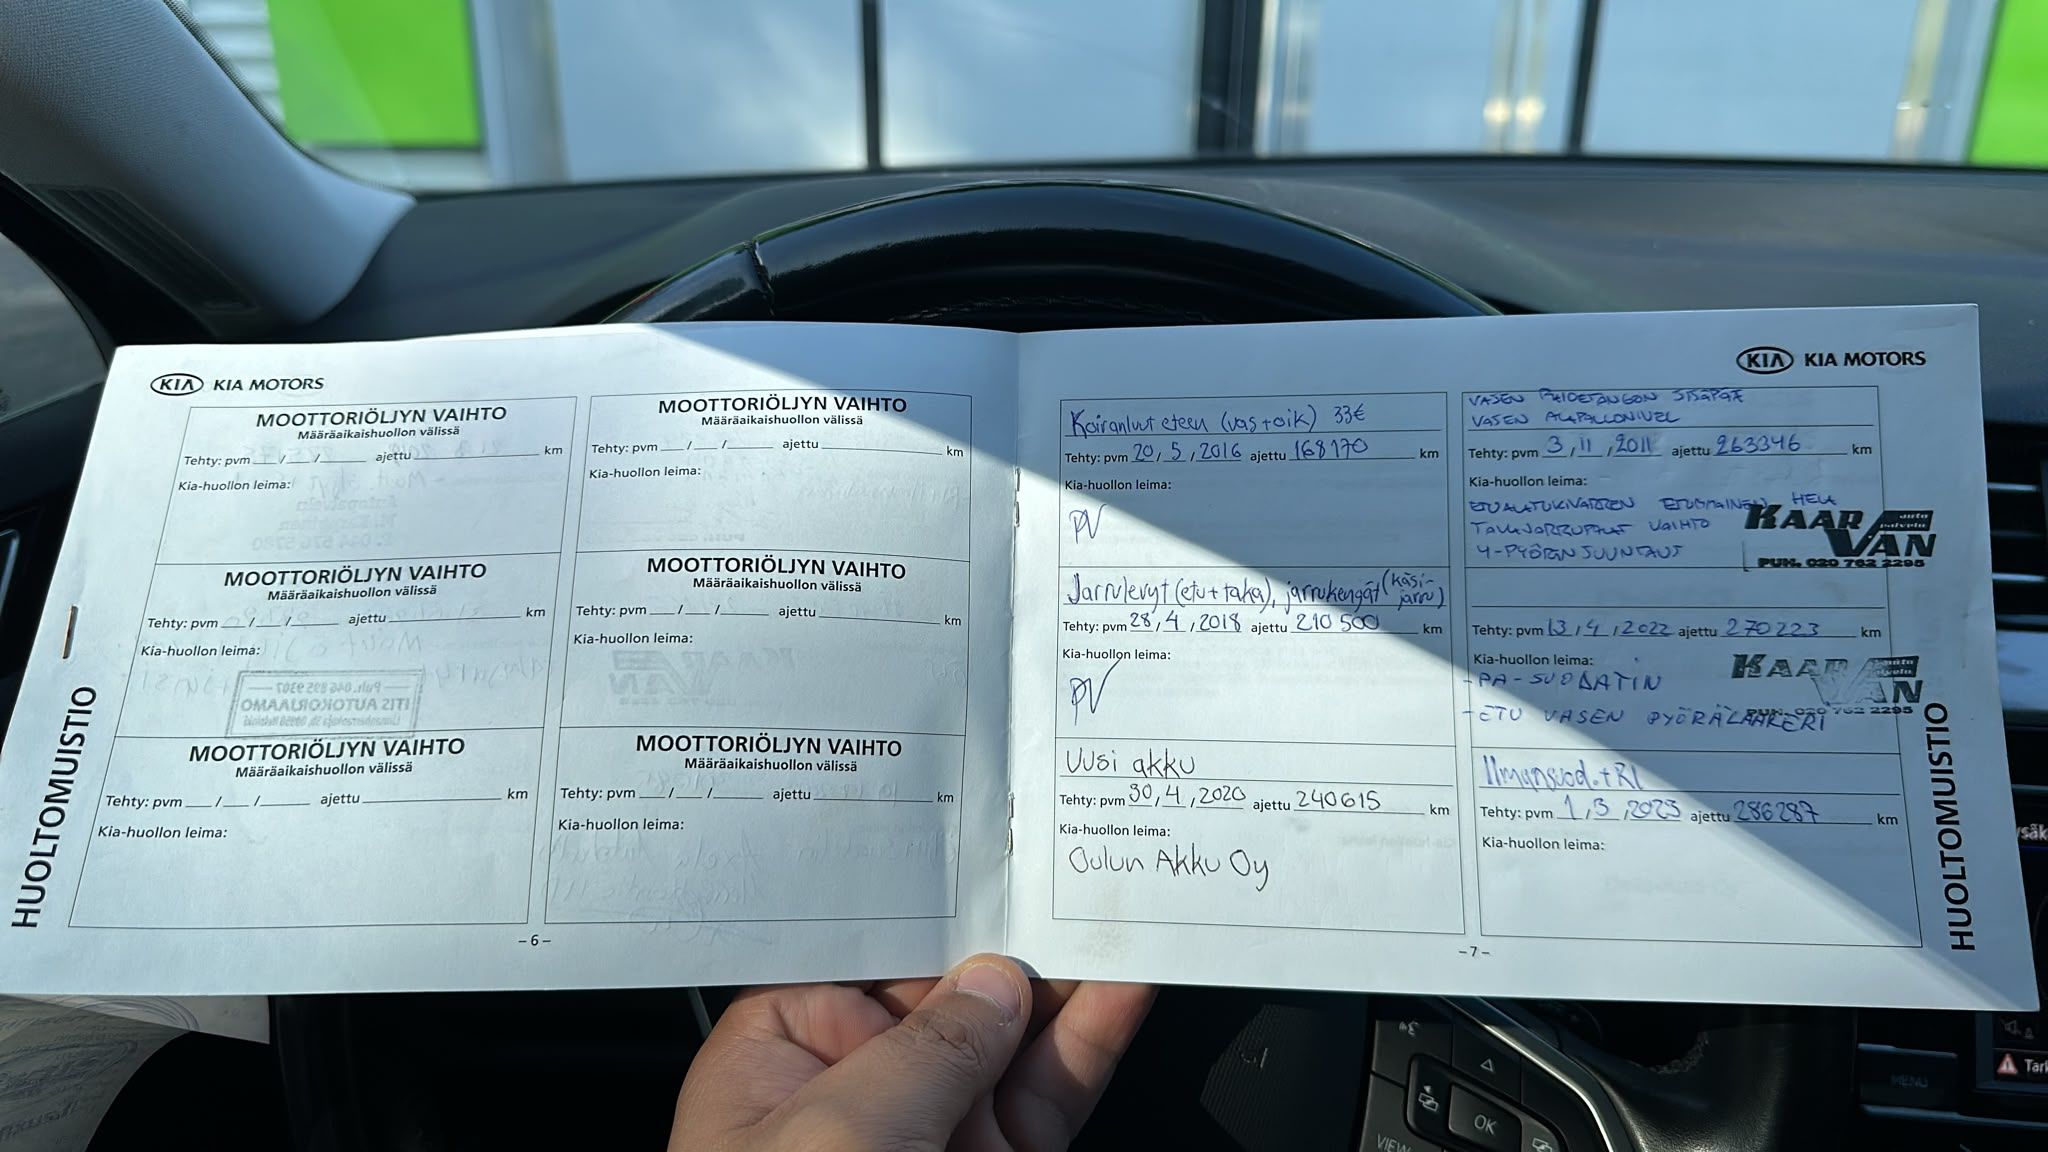 KIA KIA MOTORS
MOOTTORIÖLJYN VAIHTO
Määräaikaishuollon välissä
Tehty: pvm __/__/____ ajettu ________ km
Kia-huollon leima:
MOOTTORIÖLJYN VAIHTO
Määräaikaishuollon välissä
Tehty: pvm __/__/____ ajettu ________ km
Kia-huollon leima:
MOOTTORIÖLJYN VAIHTO
Määräaikaishuollon välissä
Tehty: pvm __/__/____ ajettu ________ km
Kia-huollon leima:
MOOTTORIÖLJYN VAIHTO
Määräaikaishuollon välissä
Tehty: pvm __/__/____ ajettu ________ km
Kia-huollon leima:
MOOTTORIÖLJYN VAIHTO
Määräaikaishuollon välissä
Tehty: pvm __/__/____ ajettu ________ km
Kia-huollon leima:
MOOTTORIÖLJYN VAIHTO
Määräaikaishuollon välissä
Tehty: pvm __/__/____ ajettu ________ km
Kia-huollon leima:
HUOLTOMUISTIO
– 6 –
KIA KIA MOTORS
Koiranluut eteen (vas+oik) 33€
Tehty: pvm 20/5/2016 ajettu 168170 km
Kia-huollon leima:
PV
Jarrulevyt (etu+taka), jarrukengät (käsi-
jarru)
Tehty: pvm 28/4/2018 ajettu 210500 km
Kia-huollon leima:
PV
Uusi akku
Tehty: pvm 30/4/2020 ajettu 240615 km
Kia-huollon leima:
Oulun Akku Oy
VASEN RAIDETANGON SISÄPÄÄ
VASEN ALAPALLONIVEL
Tehty: pvm 3/11/2011 ajettu 263346 km
Kia-huollon leima:
ETUALATUKIVARREN ETUMMAINEN HELA
TAKAJARRUPALAT VAIHTO
4-PYÖRÄNSUUNTAUS
KAAR VAN
auto palvelu
PUH. 020 762 2295
Tehty: pvm 13/4/2022 ajettu 270223 km
Kia-huollon leima:
- PA-SUODATIN
- ETU VASEN PYÖRÄLAAKERI
KAAR VAN
auto palvelu
PUH. 020 762 2295
Ilmansuod.+RI
Tehty: pvm 1/3/2023 ajettu 286287 km
Kia-huollon leima:
HUOLTOMUISTIO
– 7 –
OK
VIEW
MENU